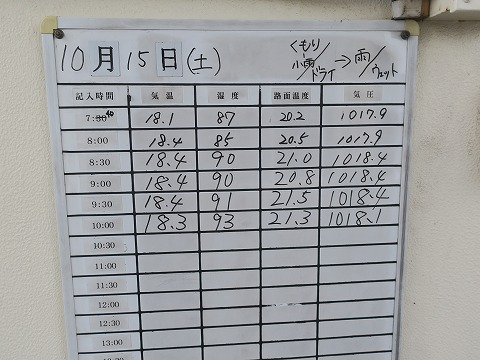 10月15日(土)
くもり/小雨/ドライ→雨/ウェット
記入時間 気温 湿度 路面温度 気圧
7:40 18.1 87 20.2 1017.9
8:00 18.4 85 20.5 1017.9
8:30 18.4 90 21.0 1018.4
9:00 18.4 90 20.8 1018.4
9:30 18.4 91 21.5 1018.4
10:00 18.3 93 21.3 1018.1
10:30
11:00
11:30
12:00
12:30
13:00